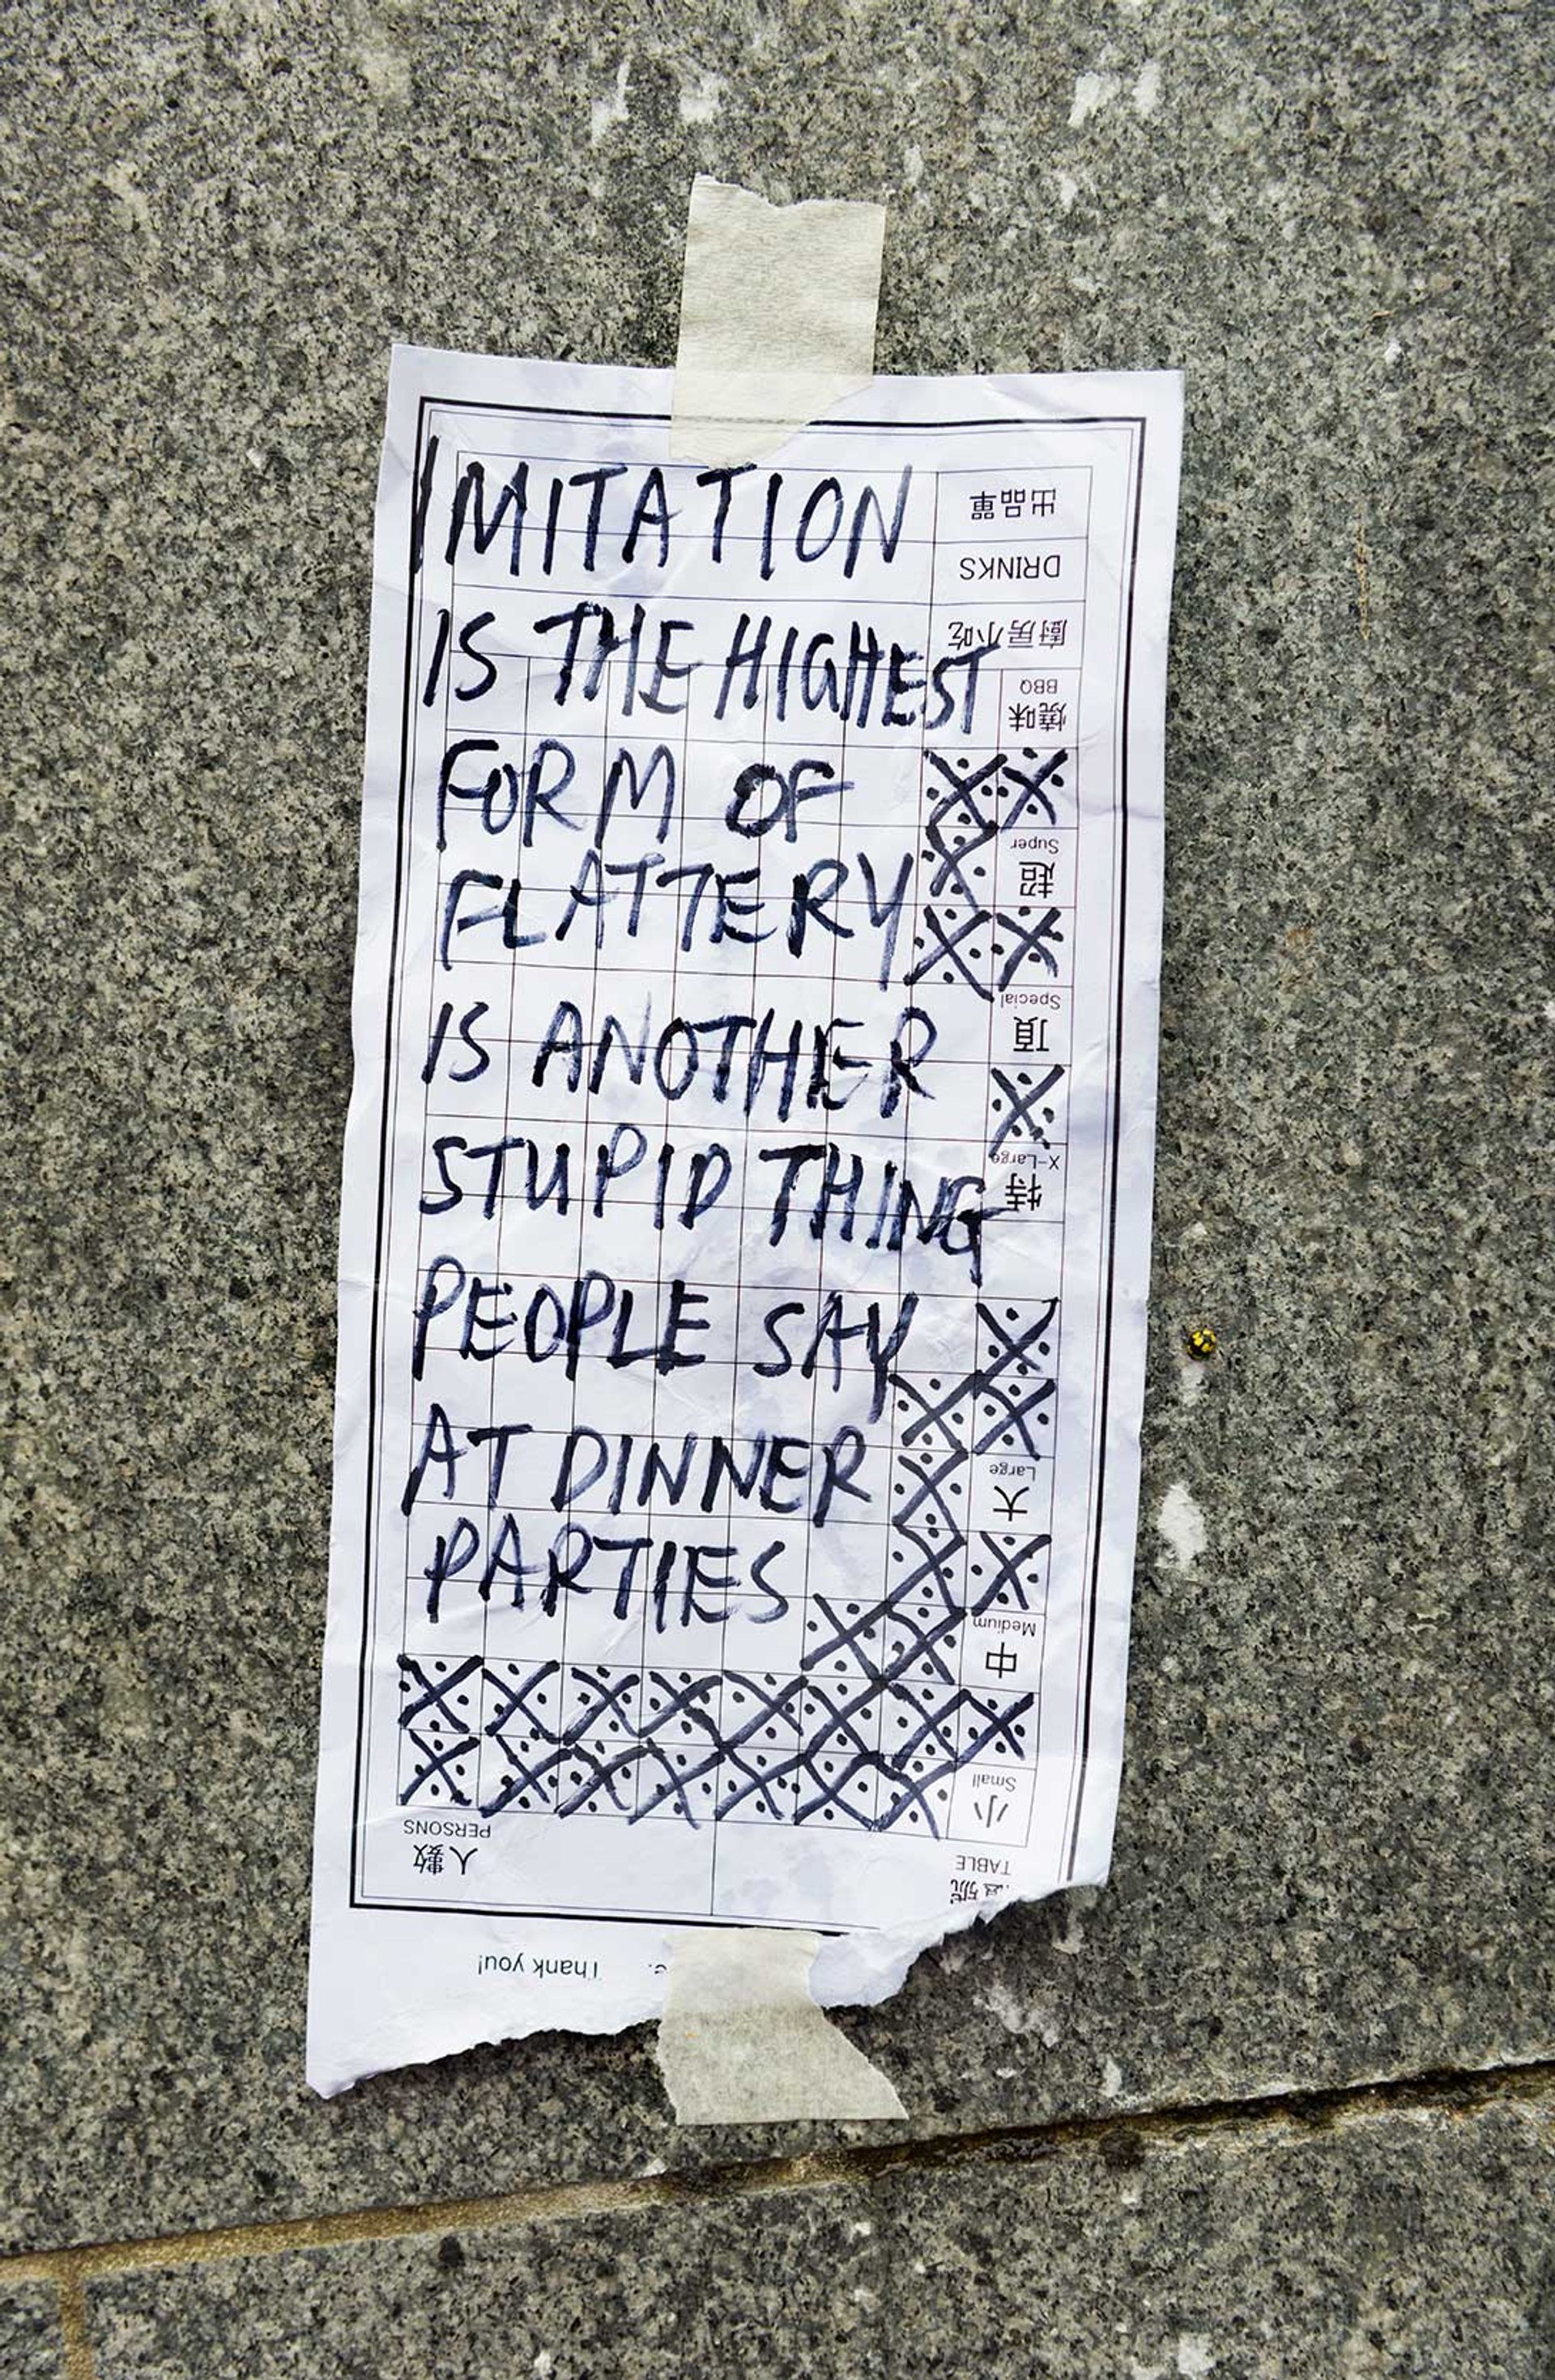 IMITATION
IS THE HIGHEST
FORM OF
FLATTERY
IS ANOTHER
STUPID THING
PEOPLE SAY
AT DINNER
PARTIES
出品單
DRINKS
廚房小吃
BBQ
燒味
Super
超
Special
頂
X-Large
特
Large
大
Medium
中
Small
小
PERSONS
人數
TABLE
號
Thank you!